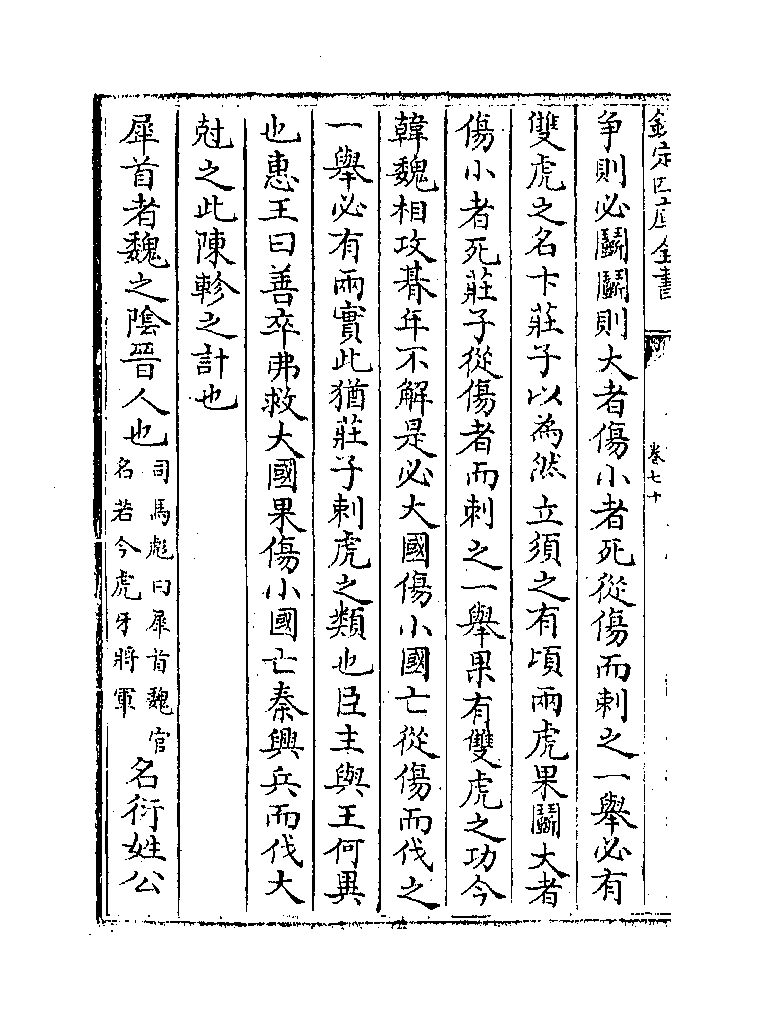 欽定四庫全書
卷七十
争則必鬭鬭則大者傷小者死從傷而刺之一舉必有
雙虎之名卞莊子以為然立須之有頃兩虎果鬭大者
傷小者死莊子從傷者而刺之一舉果有雙虎之功今
韓魏相攻朞年不解是必大國傷小國亡從傷而伐之
一舉必有兩實此猶莊子刺虎之類也臣主與王何異
也惠王曰善卒弗救大國果傷小國亡秦興兵而伐大
尅之此陳軫之計也
犀首者魏之陰晉人也司馬彪曰犀首魏官名若今虎牙將軍名衍姓公